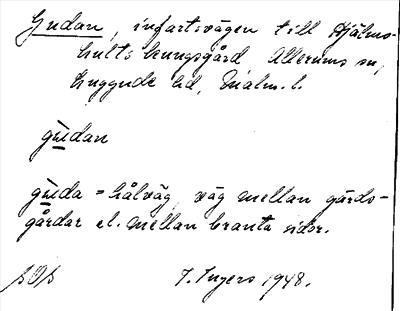 Gudan, infartsvägen till Hjälms-
hults kungsgård Allerums sn,
Luggude hd, Malm. l.
gudan
guda = hålväg, väg mellan gärds-
gårdar el. mellan branta sidor.
7. Ingers 1948.